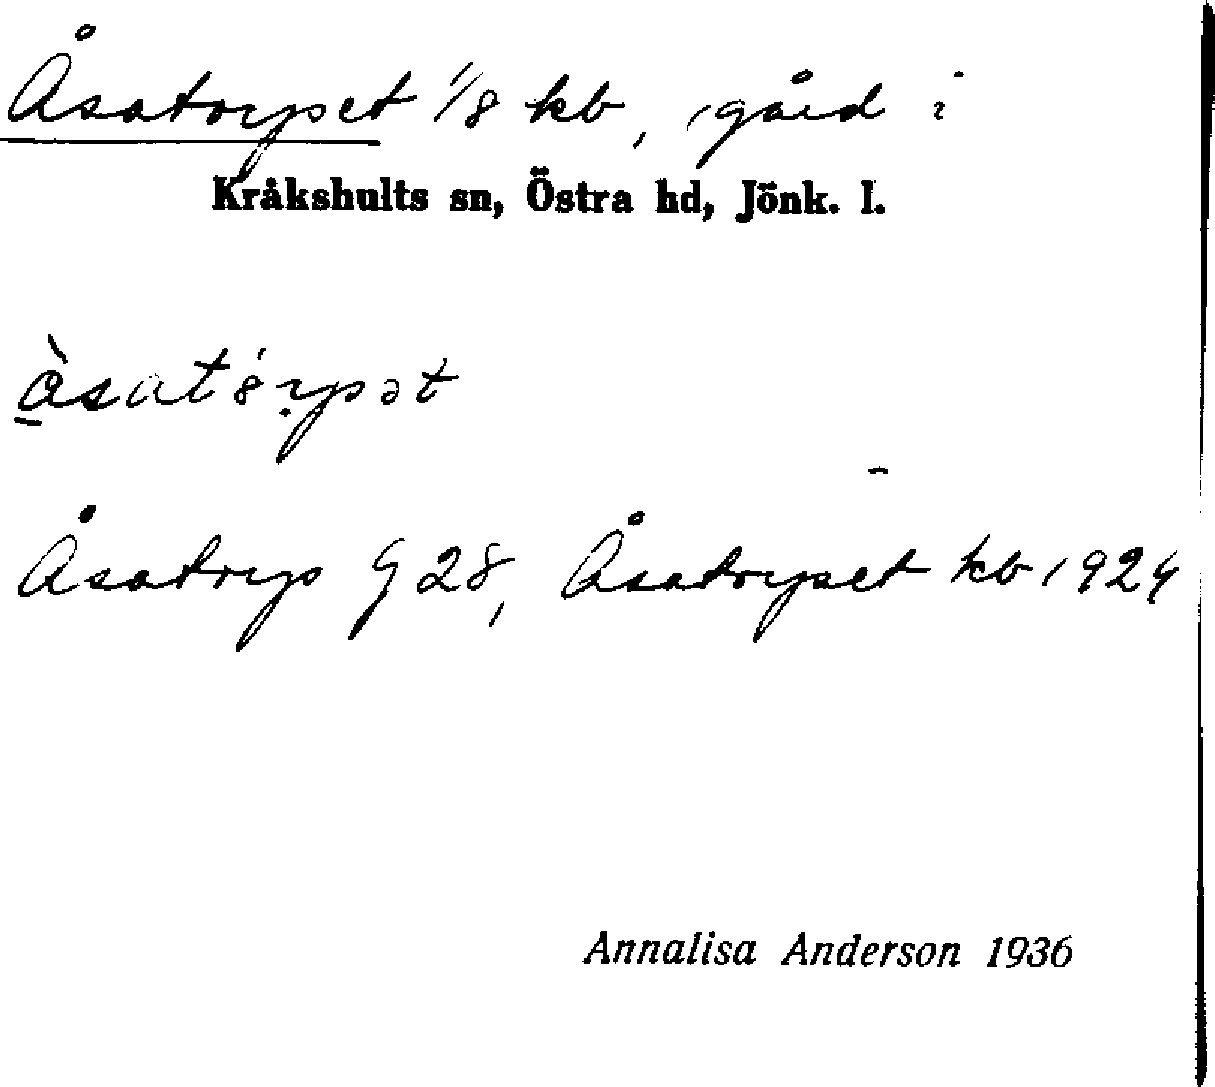 Åsatorpet 1/8 kb, gård i
Kråkshults sn, Östra hd, Jönk. l.
Åsatorp G 28, Åsatorpet kb 1924
Annalisa Anderson 1936